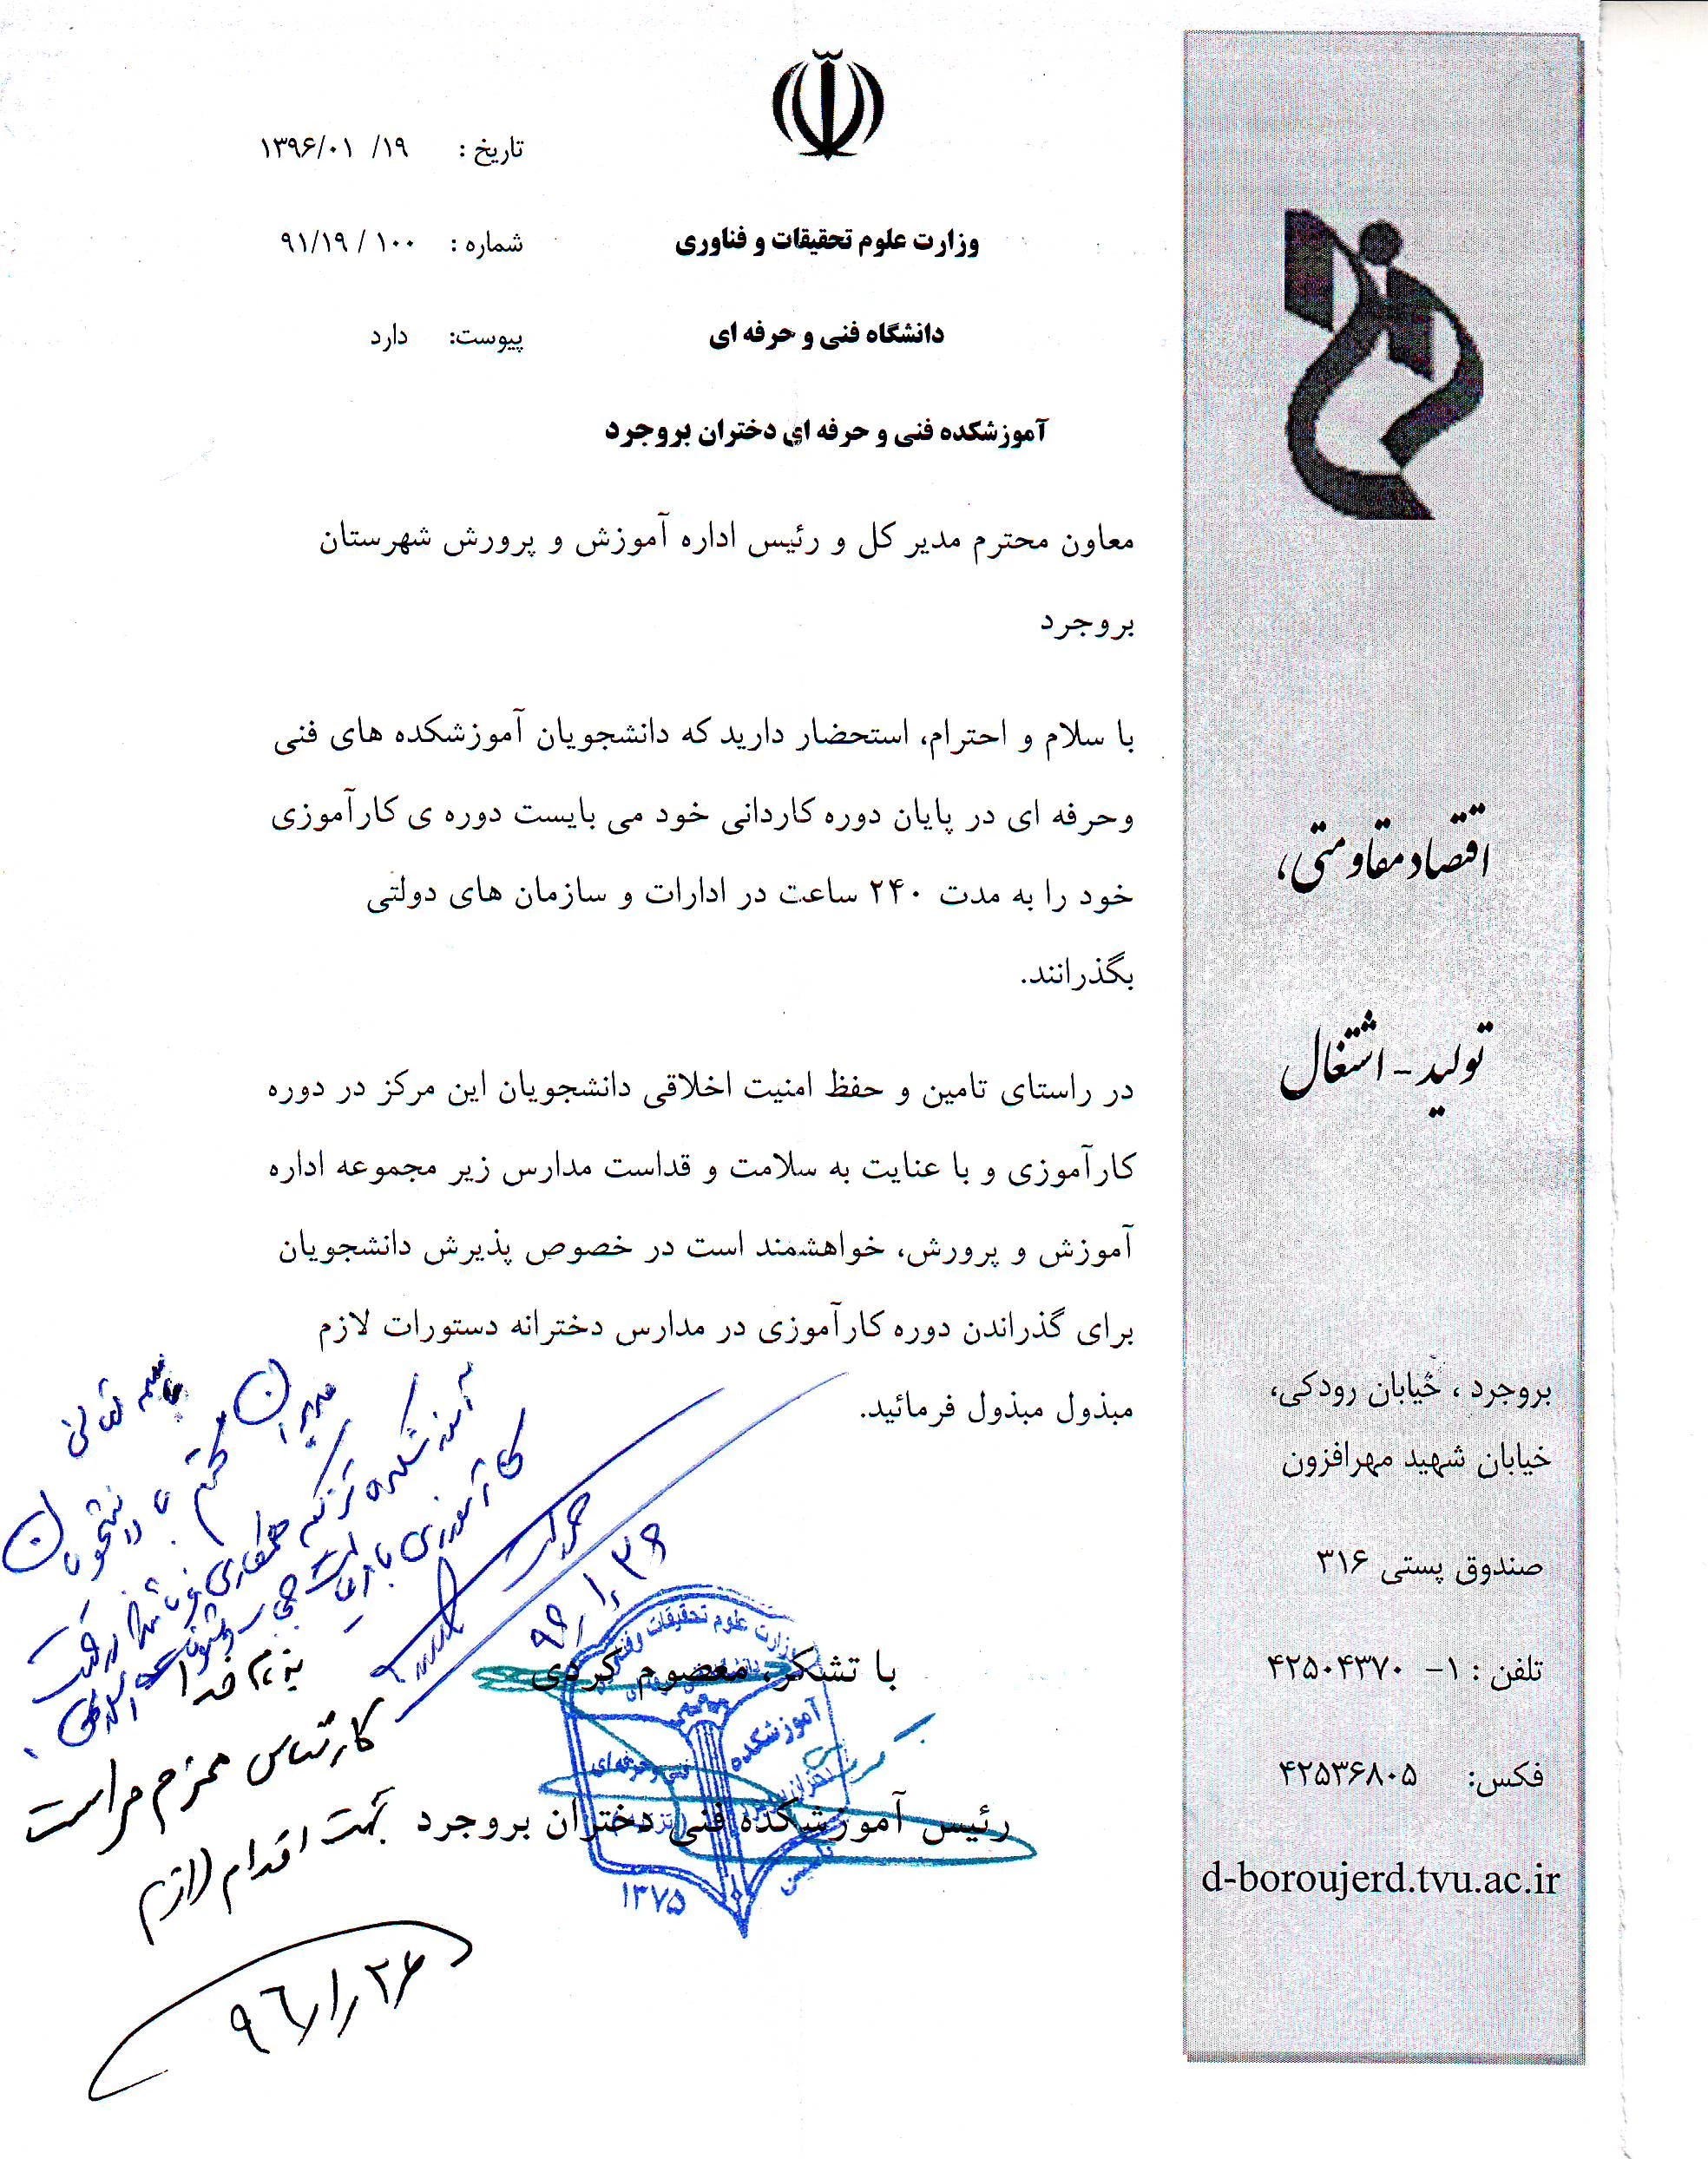 تاریخ : ۱۹/ ۱۳۹۶/۰۱
وزارت علوم تحقیقات و فناوری
شماره : ۱۰۰ / ۹۱/۱۹
دانشگاه فنی و حرفه ای
پیوست: دارد
آموزشکده فنی و حرفه ای دختران بروجرد
معاون محترم مدیر کل و رئیس اداره آموزش و پرورش شهرستان
بروجرد
با سلام و احترام، استحضار دارید که دانشجویان آموزشکده های فنی
وحرفه ای در پایان دوره کاردانی خود می بایست دوره ی کارآموزی
خود را به مدت ۲۴۰ ساعت در ادارات و سازمان های دولتی
بگذرانند.
در راستای تامین و حفظ امنیت اخلاقی دانشجویان این مرکز در دوره
کارآموزی و با عنایت به سلامت و قداست مدارس زیر مجموعه اداره
آموزش و پرورش، خواهشمند است در خصوص پذیرش دانشجویان
برای گذراندن دوره کارآموزی در مدارس دخترانه دستورات لازم
مبذول مبذول فرمائید.
با تشکر، معصوم کردی
رئیس آموزشکده فنی دختران بروجرد
وزارت علوم تحقیقات و
آموزشکده
فنی و حرفه ای
تاسیس
۱۳۷۵
باسمه تعالی
مدیران محترم با دانشجویان
آموزشکده
همکاری
کارآموزی
۹۶/۱/۲۶
بنام خدا
کارشناس محترم حراست
جهت اقدام لازم
۹۶/۱/۲۶
اقتصاد مقاومتی،
تولید - اشتغال
بروجرد ، خیابان رودکی،
خیابان شهید مهرافزون
صندوق پستی ۳۱۶
تلفن : ۱- ۴۲۵۰۴۳۷۰
فکس: ۴۲۵۳۶۸۰۵
d-boroujerd.tvu.ac.ir